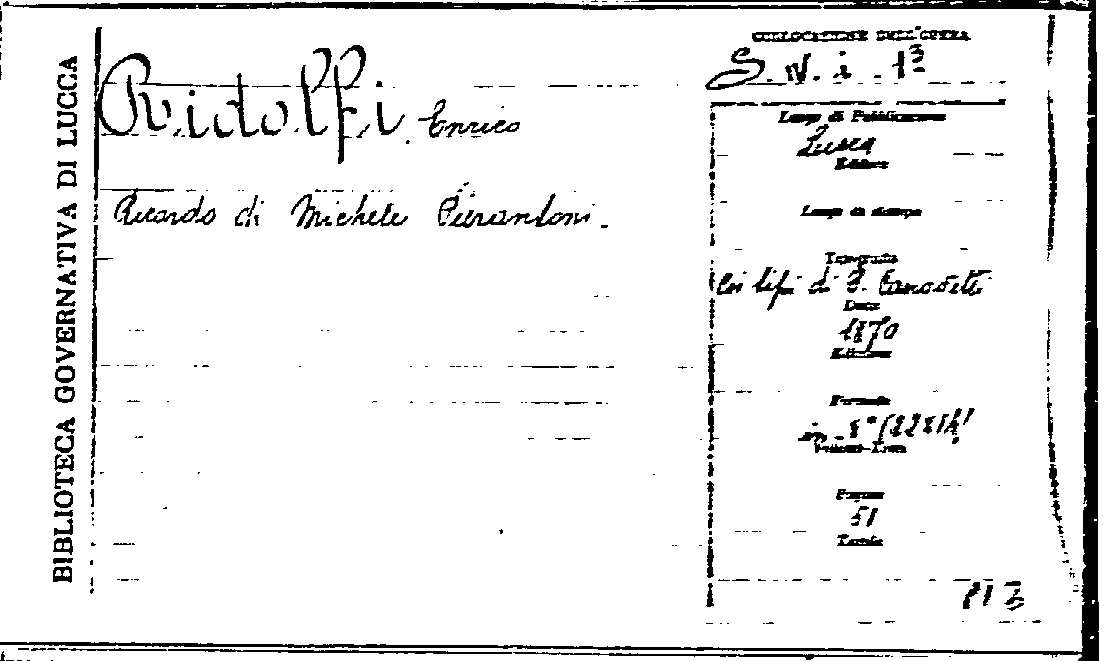 BIBLIOTECA GOVERNATIVA DI LUCCA
Ridolfi Enrico
Ricordo di Michele Pierantoni.
COLLOCAZIONE DELL'OPERA
S. N. i. 1
Luogo di Pubblicazione
Lucca
Editore
Luogo di stampa
Tipografia
Coi tipi di B. Canovetti
Data
1870
Edizione
Formato
in 8°
Pagine
51
Tavole